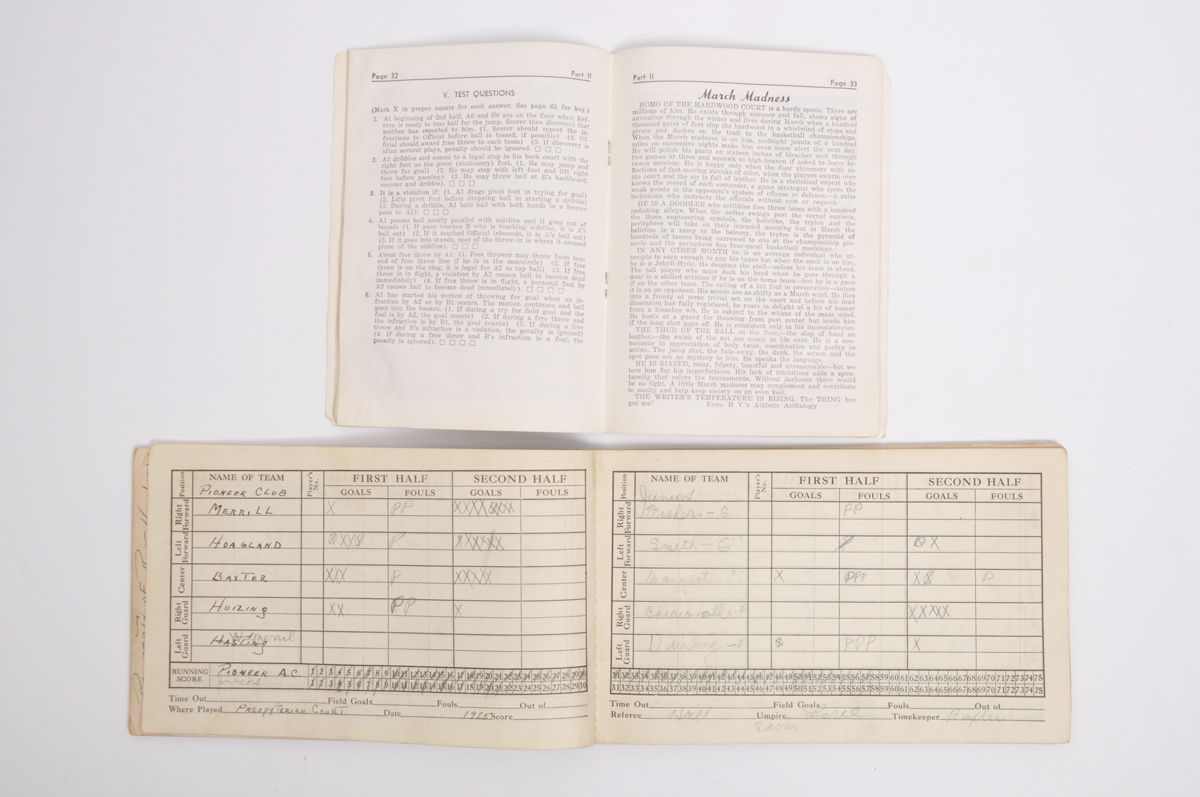 Page 32 Part II
V. TEST QUESTIONS
(Mark X in proper square for each answer. See page 63 for key.)
1. At beginning of 2nd half, A6 and B6 are on the floor when Ref-
eree is ready to toss ball for the jump. Scorer then discovers that
neither has reported to him. (1. Scorer should report the in-
fractions to Official before ball is tossed, if possible) (2. Of-
ficial should award free throw to each team) (3. If discovery is
after several plays, penalty should be ignored. □ □ □
2. A1 dribbles and comes to a legal stop in his back court with the
right foot as the pivot (stationary) foot. (1. He may jump and
throw for goal) (2. He may step with left foot and lift right
foot before passing) (3. He may throw ball at B's backboard,
recover and dribble). □ □ □
3. It is a violation if: (1. A1 drags pivot foot in trying for goal)
(2. Lifts pivot foot before dropping ball in starting a dribble)
(3. During a dribble, A1 bats ball with both hands in a bounce
pass to A2). □ □ □
4. A1 passes ball nearly parallel with sideline and it goes out of
bounds (1. If pass touches B who is touching sideline, it is A's
ball out) (2. If it touched Official inbounds, it is A's ball out)
(3. If it goes into stands, spot of the throw-in is where it crossed
plane of the sideline). □ □ □
5. About free throw by A1: (1. Free thrower may throw from near
end of free throw line if he is in the semicircle) (2. If free
throw is on the ring, it is legal for A2 to tap ball) (3. If free
throw is in flight, a violation by A2 causes ball to become dead
immediately) (4. If free throw is in flight, a personal foul by
A2 causes ball to become dead immediately). □ □ □ □
6. A1 has started his motion of throwing for goal when an in-
fraction by A2 or by B1 occurs. The motion continues and ball
goes into the basket. (1. If during a try for field goal and the
foul is by A2, the goal counts) (2. If during a free throw and
the infraction is by B1, the goal counts) (3. If during a free
throw and B's infraction is a violation, the penalty is ignored)
(4. If during a free throw and B's infraction is a foul, the
penalty is ignored). □ □ □ □
Part II Page 33
March Madness
HOMO OF THE HARDWOOD COURT is a hardy specie. There are
millions of him. He exists through summer and fall, shows signs of
animation through the winter and lives during March when a hundred
thousand pairs of feet slap the hardwood in a whirlwind of stops and
pivots and dashes on the trail to the basketball championships.
When the March madness is on him, midnight jaunts of a hundred
miles on successive nights make him even more alert the next day.
He will polish his pants on sixteen inches of bleacher seat through
two games or three and squawk to high-heaven if asked to leave be-
tween sessions. He is happy only when the floor shimmers with re-
flections of fast-moving streaks of color, when the players swarm over
the court and the air is full of leather. He is a statistical expert who
knows the record of each contender, a game strategist who spots the
weak points in the opponent's system of offense or defense,—a rules
technician who instructs the officials without cost or request.
HE IS A DOODLER who scribbles free throw lanes with a hundred
radiating alleys. When the zodiac swings past the vernal equinox,
the three engineering symbols, the helicline, the trylon and the
perisphere will take on their intended meaning but in March the
helicline is a ramp to the balcony, the trylon is the pyramid of
hundreds of teams being narrowed to one at the championship pin-
nacle and the perisphere has four-panel basketball markings.
IN ANY OTHER MONTH he is an average individual who at-
tempts to earn enough to pay his taxes but when the spell is on him,
he is a Jekyll-Hyde. He despises the stall—unless his team is ahead.
The tall player who must duck his head when he goes through a
door is a skilled artisian if he is on the home team—but he is a goon
if on the other team. The calling of a 5th foul is persecution—unless
it is on an opponent. His moods are as shifty as a March wind. He flies
into a frenzy at some trivial act on the court and before his loud
dissension has fully registered, he roars in delight at a bit of humor
from a bleacher wit. He is subject to the whims of the mass mind.
He hoots at a guard for throwing from past center but lauds him
if the long shot pays off. He is consistent only in his inconsistencies.
THE THUD OF THE BALL on the floor,—the slap of hand on
leather,—the swish of the net are music in his ears. He is a con-
noisseur in appreciation of body twist, coordination and poetry in
action. The jump shot, the fade-away, the dunk, the screen and the
spot pass are no mystery to him. He speaks the language.
HE IS BIASED, noisy, fidgety, boastful and unreasonable—but we
love him for his imperfections. His lack of inhibitions adds a spon-
taneity that colors the tournaments. Without darkness there would
be no light. A little March madness may complement and contribute
to sanity and help keep society on an even keel.
THE WRITER'S TEMPERATURE IS RISING. The THING has
got me! From H V.'s Athletic Anthology
Position NAME OF TEAM Player's No. FIRST HALF SECOND HALF
PIONEER CLUB GOALS FOULS GOALS FOULS
Right Forward MERRILL X PP XXXXXXX
Left Forward HOAGLAND P
Center BAXTER XXX P XXXX
Right Guard HUIZING XX PP X
Left Guard HASLING
RUNNING SCORE PIONEER A.C. 1 2 3 4 5 6 7 8 9 10 11 12 13 14 15 16 17 18 19 20 21 22 23 24 25 26 27 28 29 30
1 2 3 4 5 6 7 8 9 10 11 12 13 14 15 16 17 18 19 20 21 22 23 24 25 26 27 28 29 30
Time Out Field Goals Fouls Out of
Where Played PRESBYTERIAN COURT Date 1925 Score
Position NAME OF TEAM Player's No. FIRST HALF SECOND HALF
Juniors GOALS FOULS GOALS FOULS
Right Forward PP
Left Forward Smith - G X
Center X PPP X P
Right Guard XXXXX
Left Guard PPP X
31 32 33 34 35 36 37 38 39 40 41 42 43 44 45 46 47 48 49 50 51 52 53 54 55 56 57 58 59 60 61 62 63 64 65 66 67 68 69 70 71 72 73 74 75
31 32 33 34 35 36 37 38 39 40 41 42 43 44 45 46 47 48 49 50 51 52 53 54 55 56 57 58 59 60 61 62 63 64 65 66 67 68 69 70 71 72 73 74 75
Time Out Field Goals Fouls Out of
Referee Umpire Timekeeper